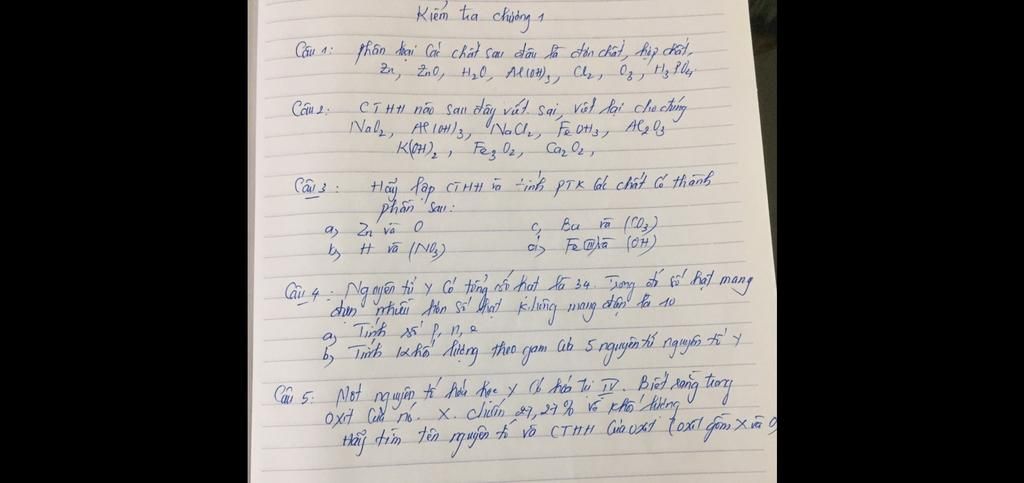 Kiểm tra chương 1
Câu 1: Phân loại các chất sau đâu là đơn chất, hợp chất,
Zn, ZnO, H2O, Al(OH)3, Cl2, O3, H3PO4.
Câu 2: CTHH nào sau đây viết sai, viết lại cho đúng
NaO2, Al(OH)3, NaCl2, FeOH3, Al2O3
K(OH)2, Fe3O2, Ca2O2,
Câu 3: Hãy lập CTHH và tính PTK các chất có thành
phần sau:
a, Zn và O c, Ba và (CO3)
b, H và (NO3) d, Fe(III) và (OH)
Câu 4: Nguyên tử Y có tổng số hạt là 34. Trong đó số hạt mang
điện nhiều hơn số hạt không mang điện là 10
a, Tính số p, n, e
b, Tính khối lượng theo gam của 5 nguyên tử nguyên tố Y
Câu 5: Một nguyên tố hóa học Y có hóa trị IV. Biết rằng trong
oxit của nó. X. chiếm 27,27% về khối lượng
Hãy tìm tên nguyên tố và CTHH của oxit (oxit gồm X và O